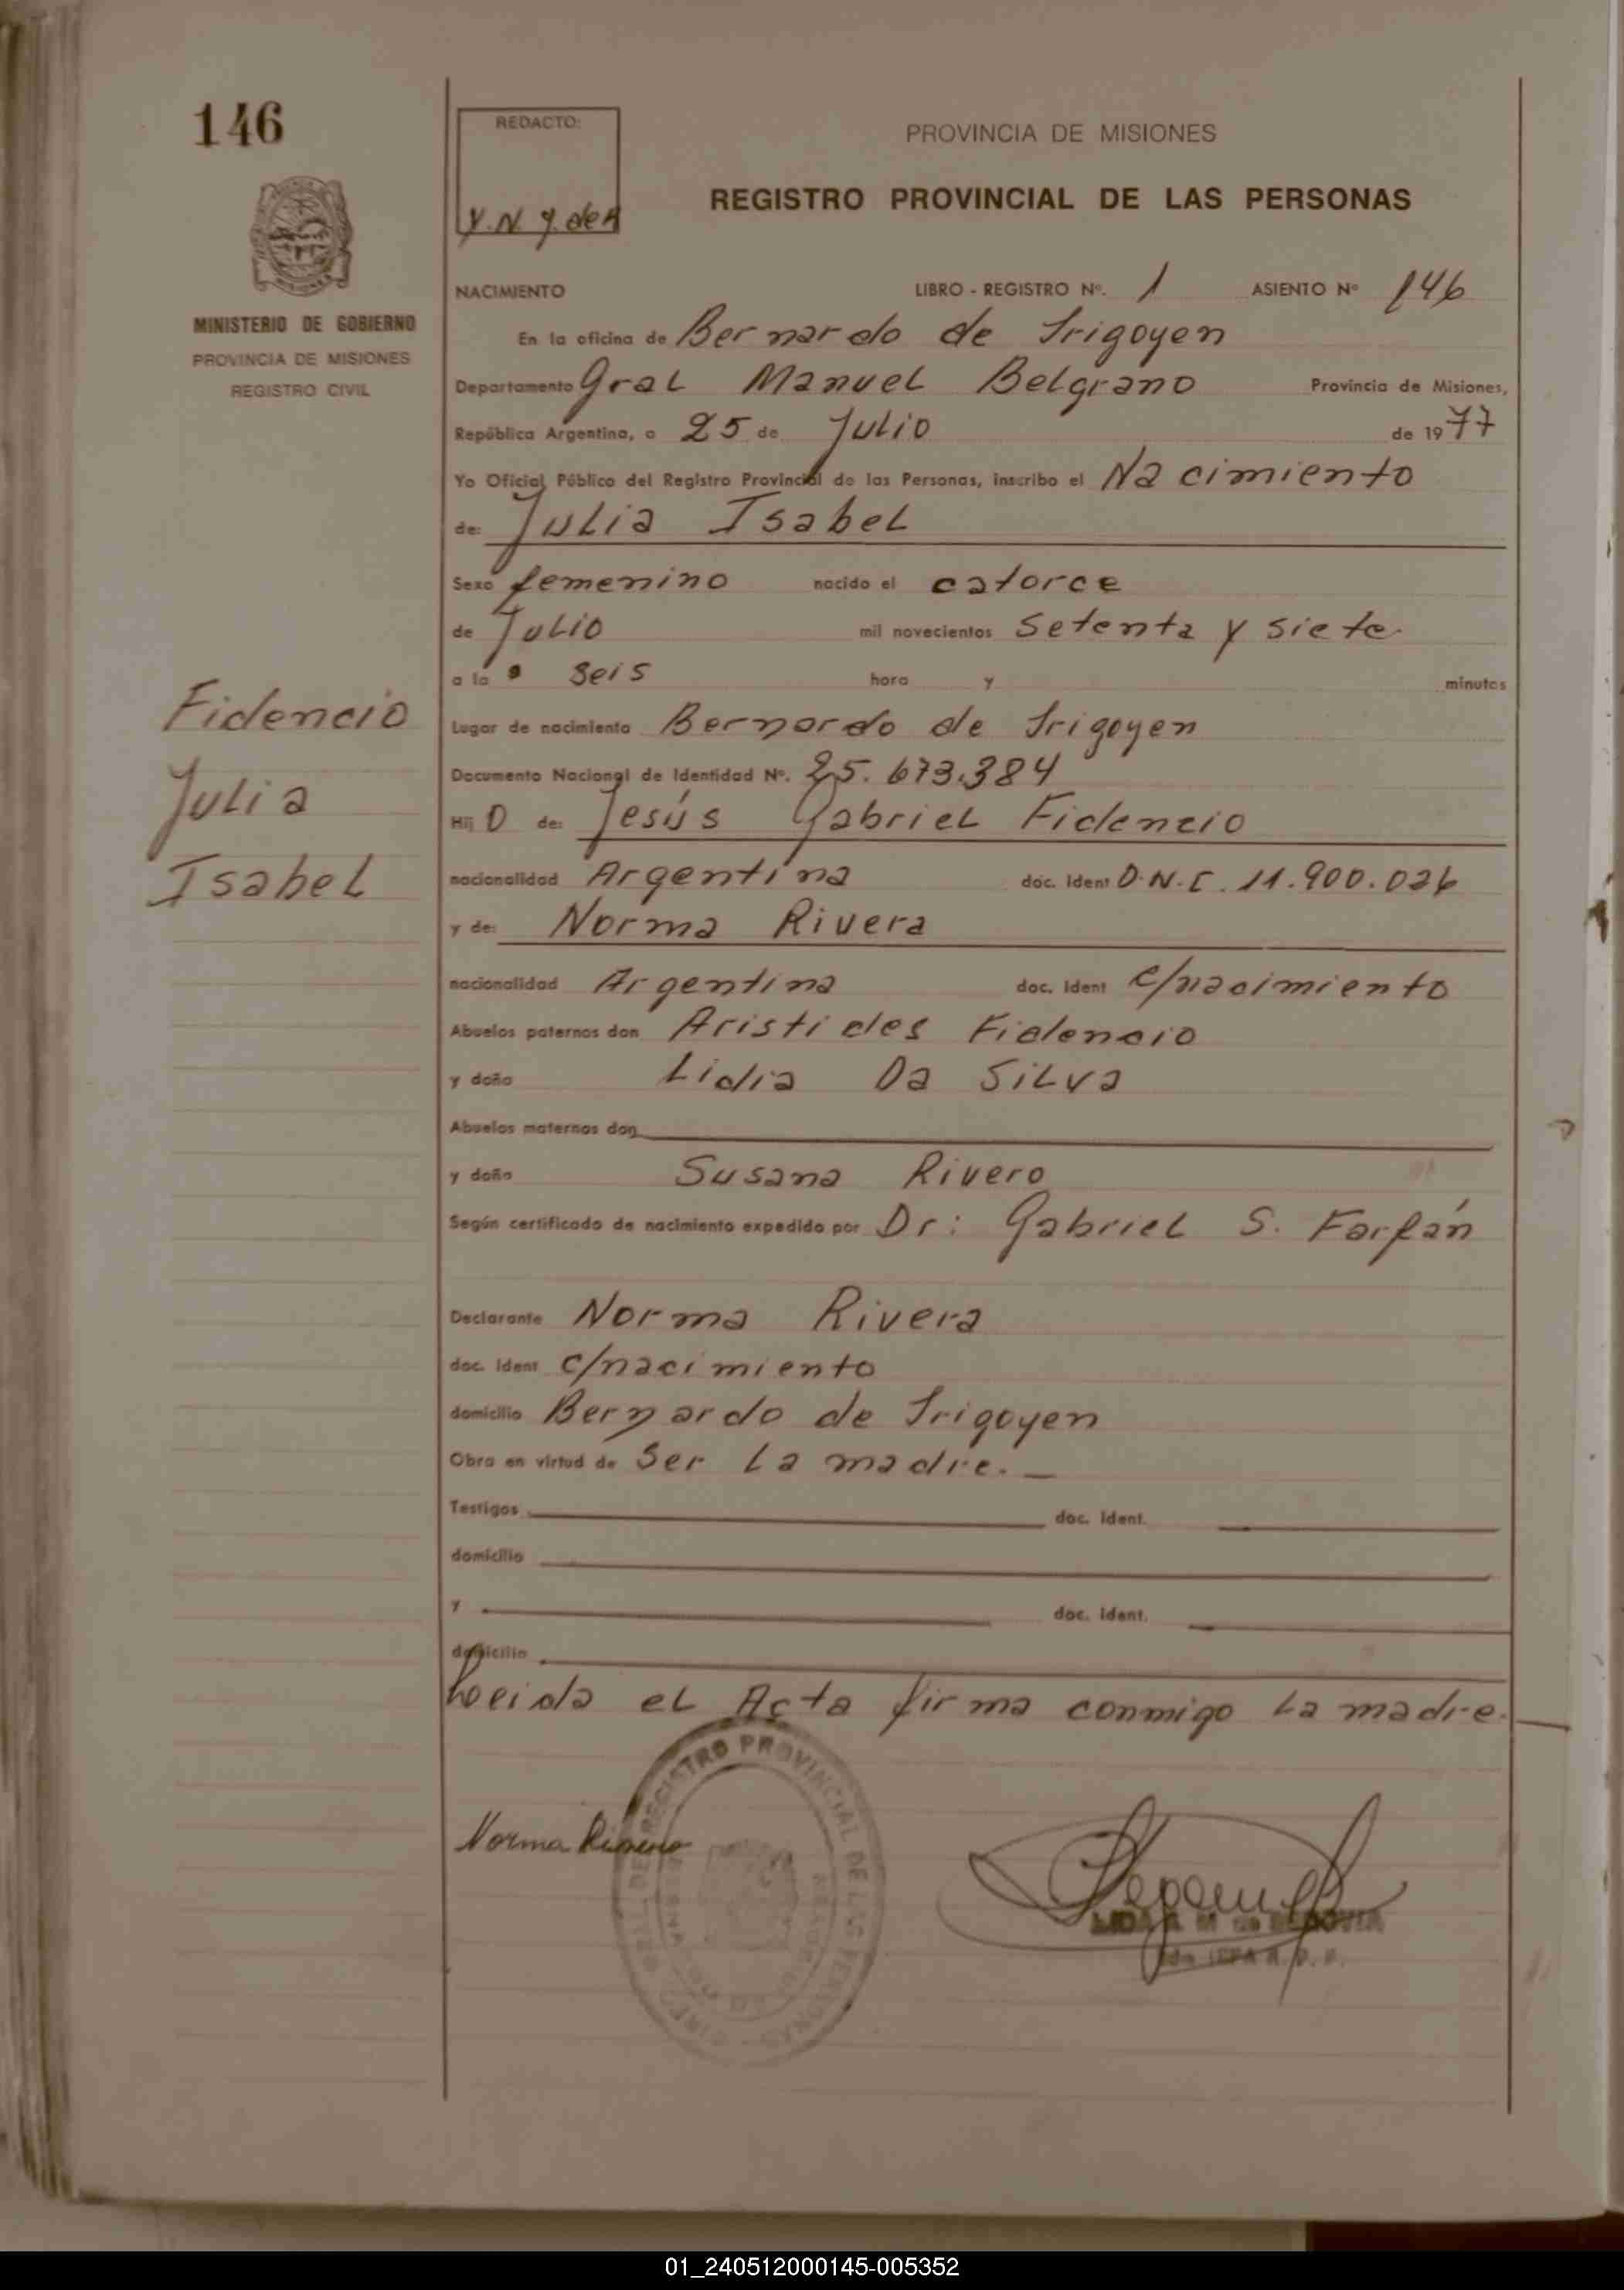 146
REDACTO:
Y.N. y. de R
PROVINCIA DE MISIONES
REGISTRO PROVINCIAL DE LAS PERSONAS
MINISTERIO DE GOBIERNO
PROVINCIA DE MISIONES
REGISTRO CIVIL
NACIMIENTO LIBRO - REGISTRO Nº. 1 ASIENTO Nº 146
En la oficina de Bernardo de Irigoyen
Departamento Gral Manuel Belgrano Provincia de Misiones,
República Argentina, a 25 de Julio de 1977
Yo Oficial Público del Registro Provincial de las Personas, inscribo el Nacimiento
de: Julia Isabel
Sexo femenino nacido el catorce
de Julio mil novecientos Setenta y siete
a la s seis hora y minutos
Fidencio
Julia
Isabel
Lugar de nacimiento Bernardo de Irigoyen
Documento Nacional de Identidad Nº. 25.673.384
Hij O de: Jesús Gabriel Fidencio
nacionalidad Argentina doc. Ident D.N.I. 11.900.026
y de: Norma Rivera
nacionalidad Argentina doc. Ident c/nacimiento
Abuelos paternos don Aristides Fidencio
y doña Lidia Da Silva
Abuelos maternos don
y doña Susana Rivero
Según certificado de nacimiento expedido por Dr: Gabriel S. Farfán
Declarante Norma Rivera
doc. Ident c/nacimiento
domicilio Bernardo de Irigoyen
Obra en virtud de Ser La madre.
Testigos doc. Ident.
domicilio
y doc. Ident.
domicilio
Leida el Acta firma conmigo La madre.
REGISTRO PROVINCIAL DE LAS PERSONAS
Norma Rivero
01_240512000145-005352